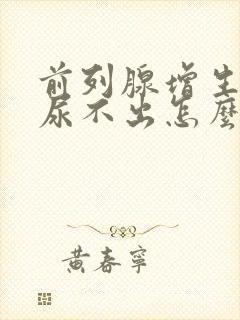 前列腺增生
尿不出怎麼
黃春寧